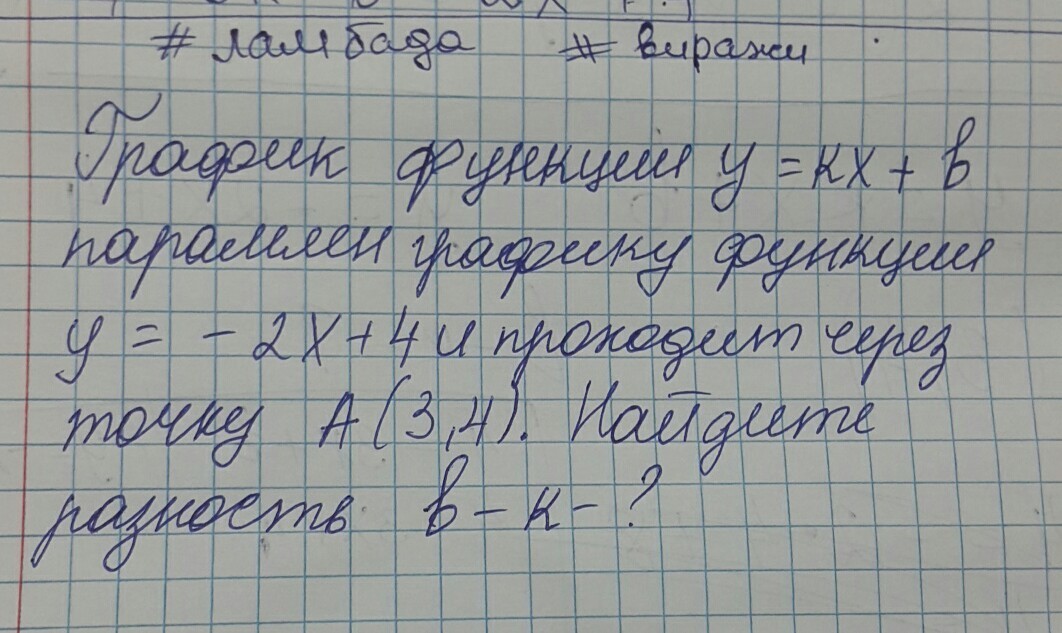 # ламбада # виражи
График функции y = kx + b
параллелен графику функции
y = - 2x + 4 и проходит через
точку A(3,4). Найдите
разность b - k - ?